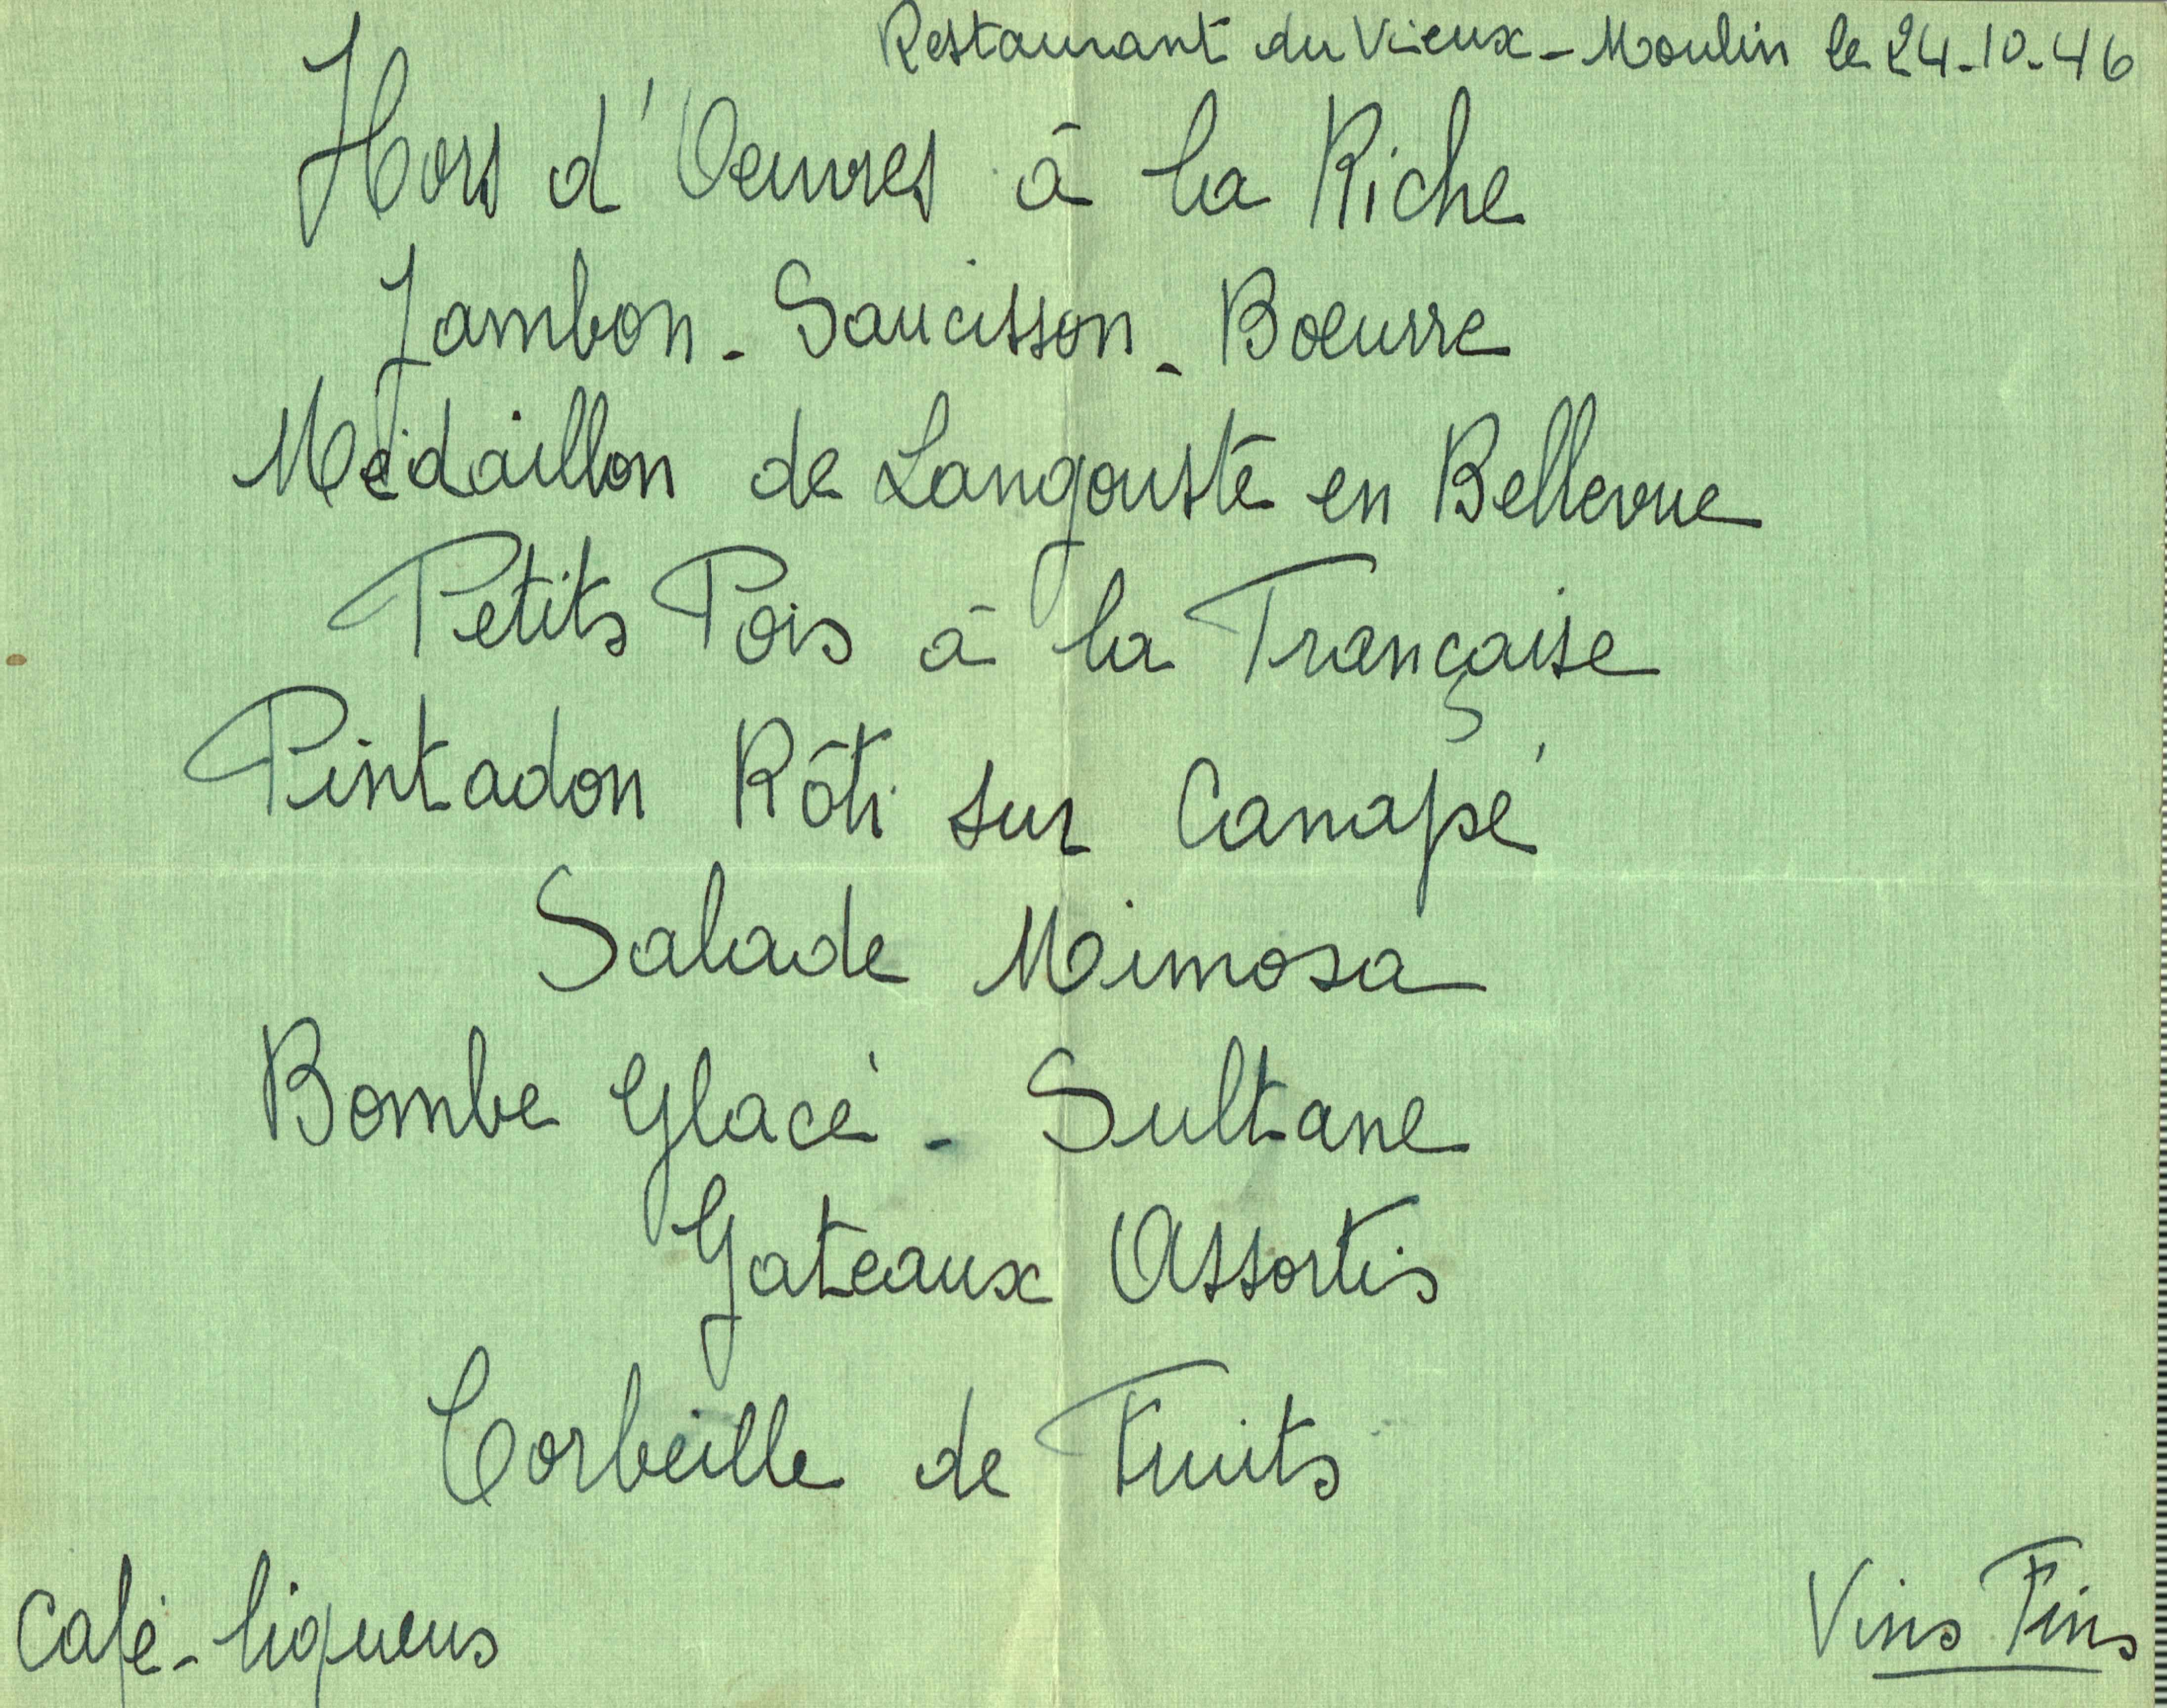 Restaurant du Vieux-Moulin le 24-10-46
Hors d'Oeuvres à la Riche
Jambon - Saucisson - Boeurre
Médaillon de Langouste en Bellevue
Petits Pois à la Française
Pintadon Rôti sur Canapé
Salade Mimosa
Bombe Glacé - Sultane
Gateaux Assortis
Corbeille de Fruits
Café - liqueurs
Vins Fins